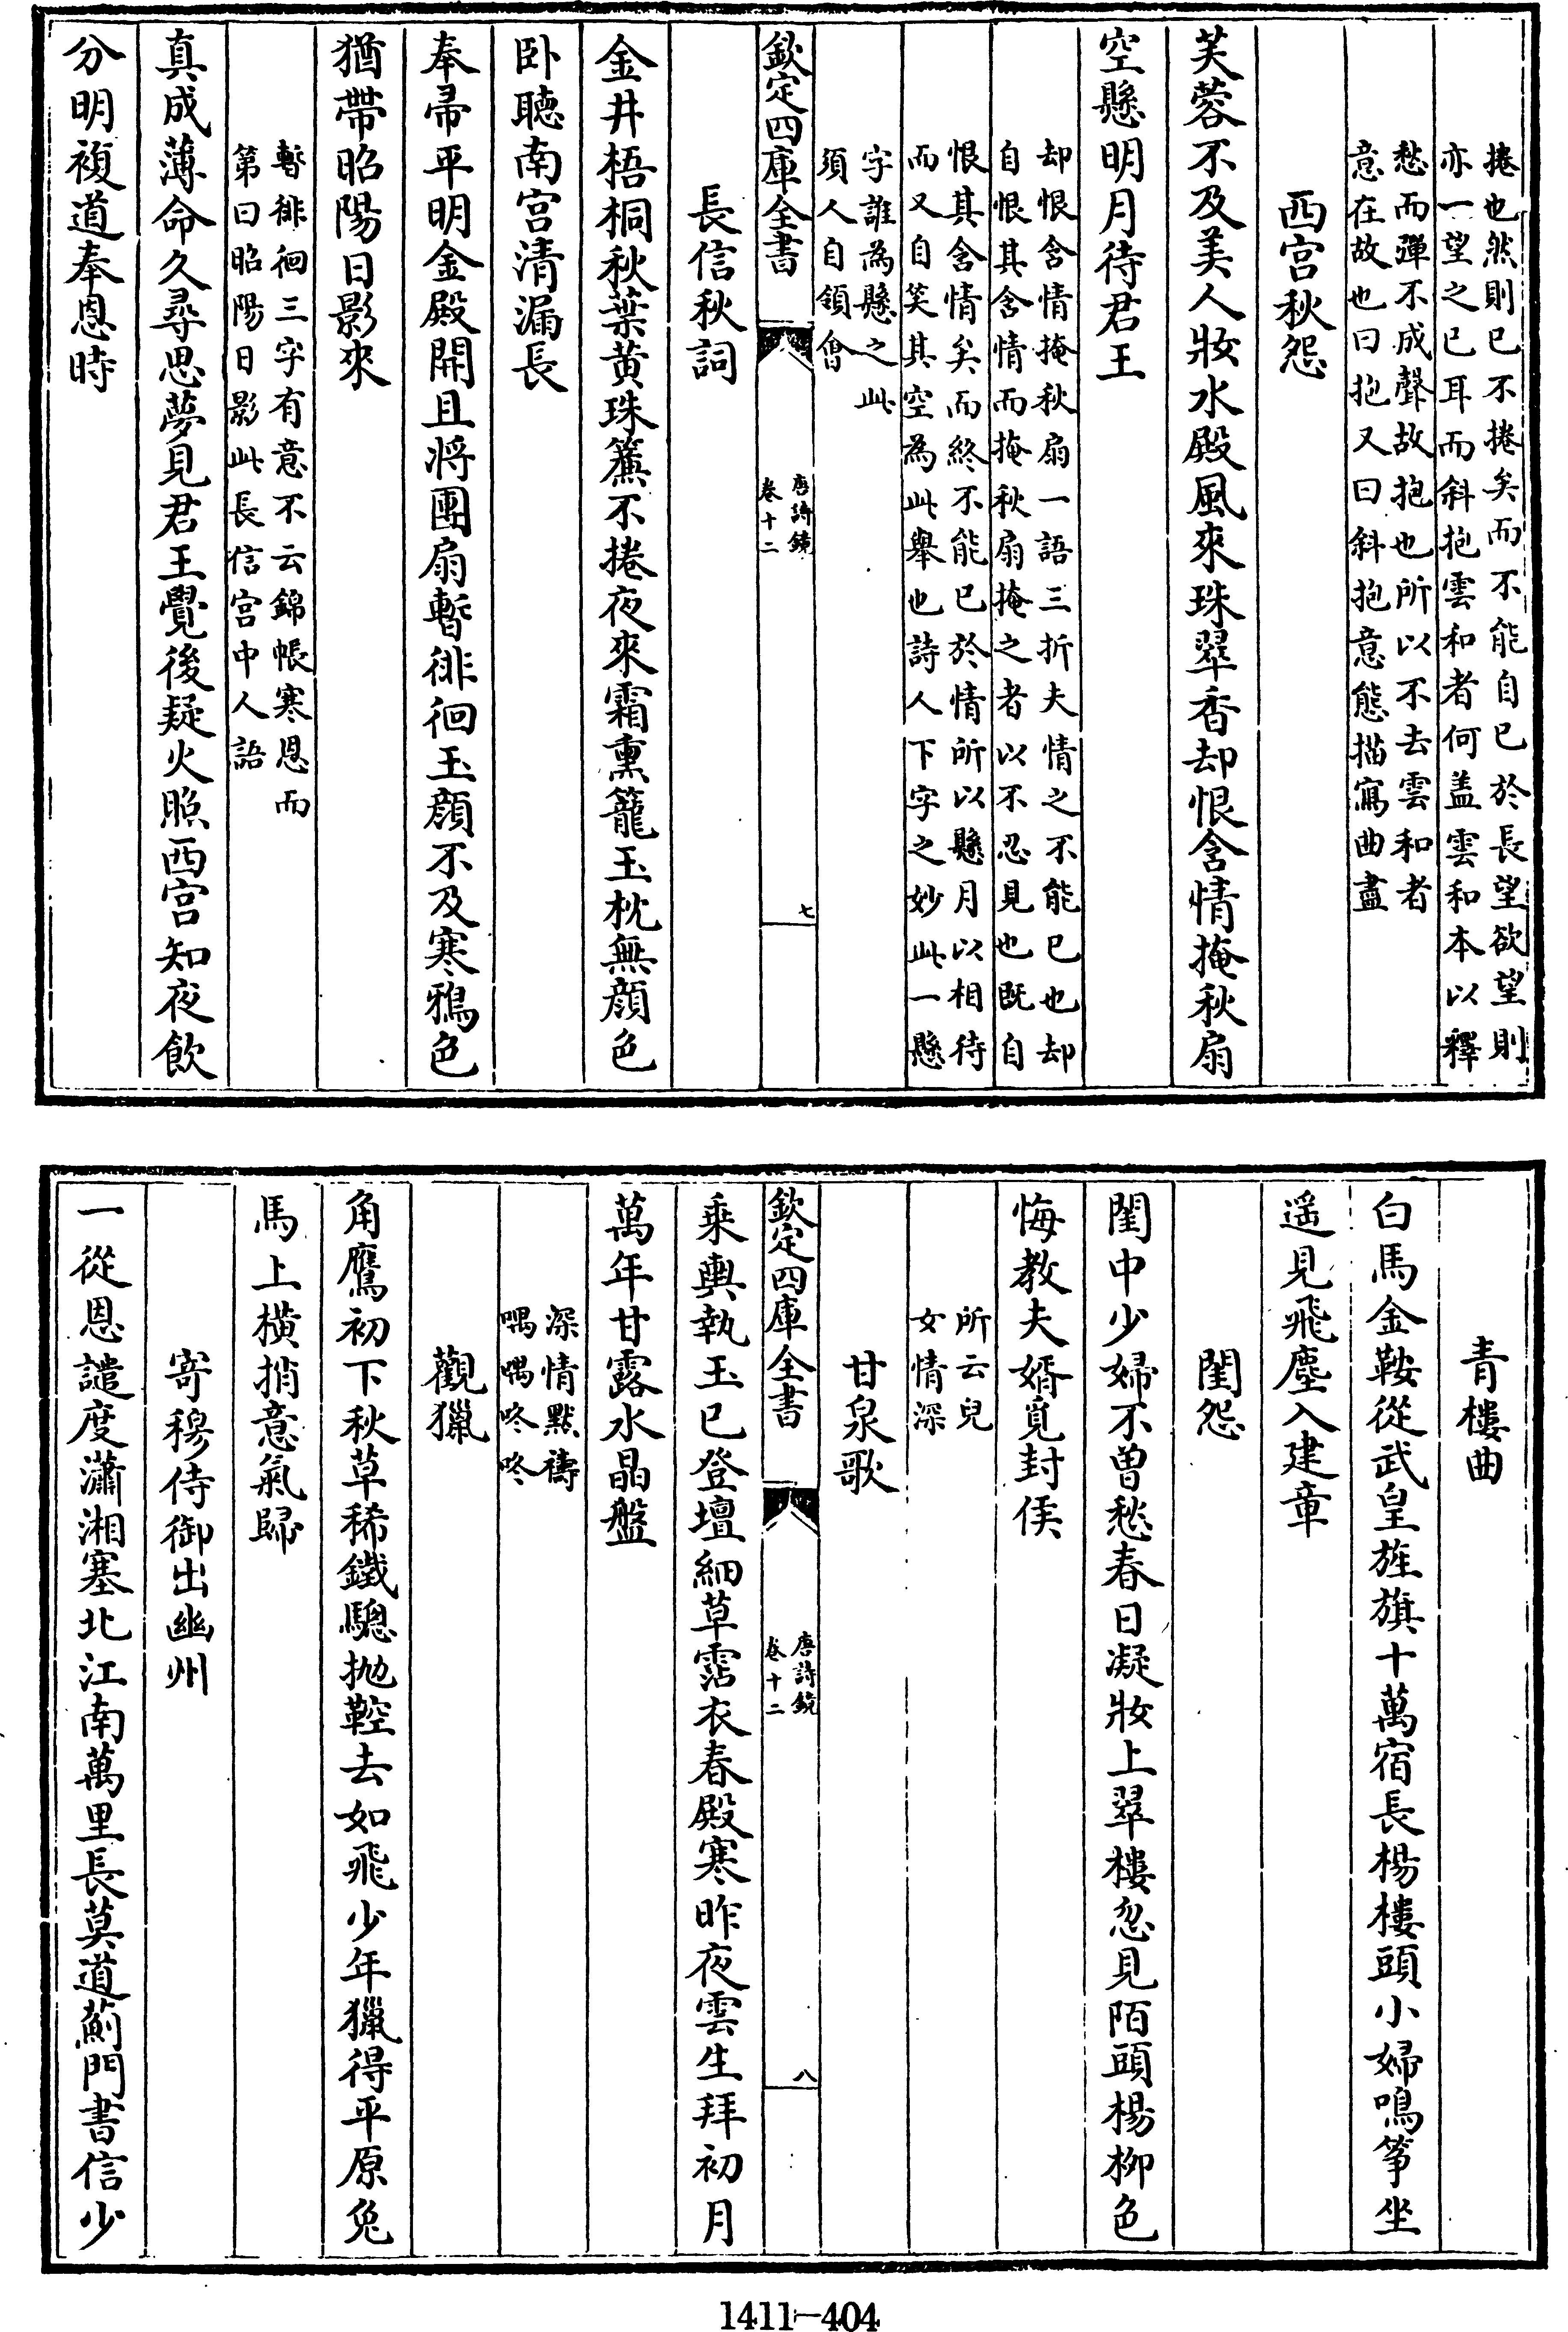 捲也然則已不捲矣而不能自已於長望欲望則
亦一望之已耳而斜抱雲和者何盖雲和本以釋
愁而彈不成聲故抱也所以不去雲和者
意在故也曰抱又曰斜抱意態描寫曲盡
西宫秋怨
芙蓉不及美人妝水殿風來珠翠香却恨含情掩秋扇
空懸明月待君王
却恨含情掩秋扇一語三折夫情之不能已也却
自恨其含情而掩秋扇掩之者以不忍見也既自
恨其含情矣而終不能已於情所以懸月以相待
而又自笑其空為此舉也詩人下字之妙此一懸
字誰為懸之此
須人自領會
欽定四庫全書
唐詩鏡
卷十二
七
長信秋詞
金井梧桐秋葉黄珠簾不捲夜來霜熏籠玉枕無顔色
卧聽南宫清漏長
奉帚平明金殿開且將團扇暫徘徊玉顔不及寒鴉色
猶帶昭陽日影來
暫徘徊三字有意不云錦帳寒恩而
第曰昭陽日影此長信宫中人語
真成薄命久尋思夢見君王覺後疑火照西宫知夜飲
分明複道奉恩時
青樓曲
白馬金鞍從武皇旌旗十萬宿長楊樓頭小婦鳴筝坐
遥見飛塵入建章
閨怨
閨中少婦不曽愁春日凝妝上翠樓忽見陌頭楊柳色
悔教夫婿覓封侯
所云兒
女情深
甘泉歌
欽定四庫全書
唐詩鏡
卷十二
八
乘輿執玉已登壇細草霑衣春殿寒昨夜雲生拜初月
萬年甘露水晶盤
深情黙禱
喁喁咚咚
觀獵
角鷹初下秋草稀鐵驄抛鞚去如飛少年獵得平原兔
馬上横捎意氣歸
寄穆侍御出幽州
一從恩譴度瀟湘塞北江南萬里長莫道薊門書信少
1411-404